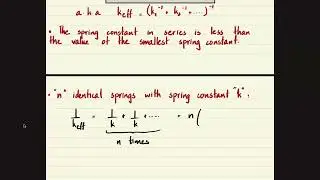 a.k.a k_eff = (k₁⁻¹ + k₂⁻¹ + ....)⁻¹
• The spring constant in series is less than
the value of the smallest spring constant.
• "n" identical springs with spring constant "k":
1/k_eff = 1/k + 1/k + ..... = n(
n times